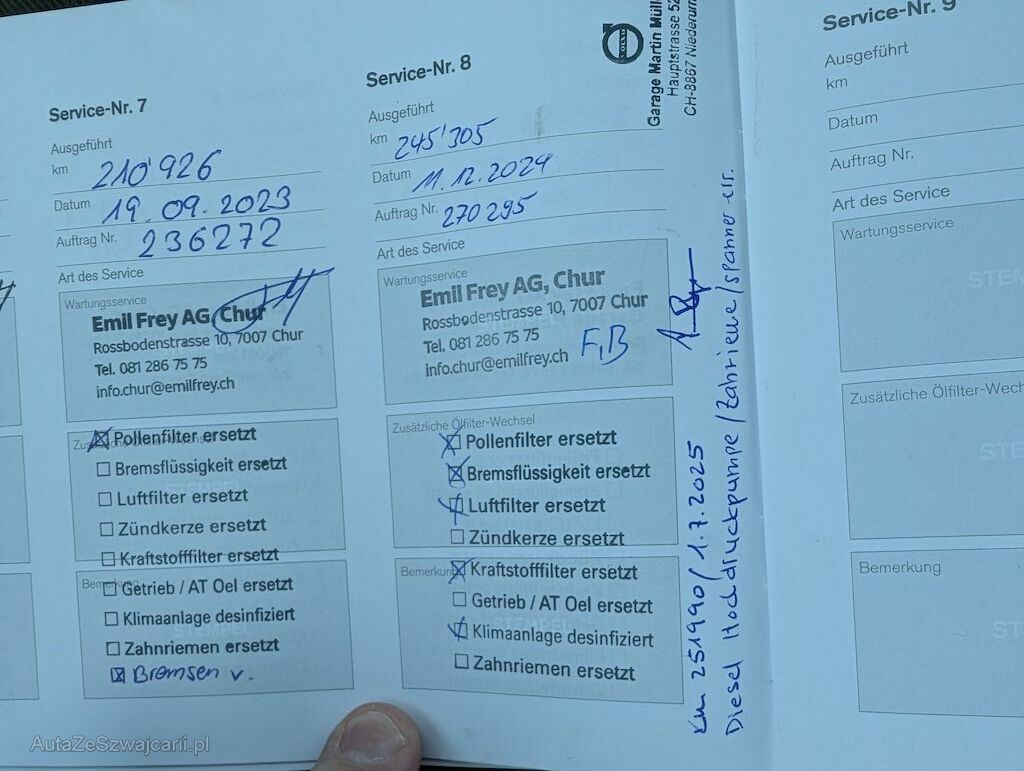 Service-Nr. 7
Ausgeführt
km 210'926
Datum 19.09.2023
Auftrag Nr. 236272
Art des Service
Wartungsservice
Emil Frey AG, Chur
Rossbodenstrasse 10, 7007 Chur
Tel. 081 286 75 75
info.chur@emilfrey.ch
Pollenfilter ersetzt
Bremsflüssigkeit ersetzt
Luftfilter ersetzt
Zündkerze ersetzt
Kraftstofffilter ersetzt
Getrieb / AT Oel ersetzt
Klimaanlage desinfiziert
Zahnriemen ersetzt
Bremsen v.
Service-Nr. 8
Ausgeführt
km 245'305
Datum 11.12.2024
Auftrag Nr. 270295
Art des Service
Wartungsservice
Emil Frey AG, Chur
Rossbodenstrasse 10, 7007 Chur
Tel. 081 286 75 75
info.chur@emilfrey.ch
F,B
Zusätzliche Ölfilter-Wechsel
Pollenfilter ersetzt
Bremsflüssigkeit ersetzt
Luftfilter ersetzt
Zündkerze ersetzt
Bemerkung
Kraftstofffilter ersetzt
Getrieb / AT Oel ersetzt
Klimaanlage desinfiziert
Zahnriemen ersetzt
VOLVO
Garage Martin Müll
Hauptstrasse 52
CH-8867 Niederurn
km 251990 / 1.7.2025
Diesel Hochdruckpumpe / Zahrieme / spanner etr.
Service-Nr. 9
Ausgeführt
km
Datum
Auftrag Nr.
Art des Service
Wartungsservice
STEM
Zusätzliche Ölfilter-Wechs
STE
Bemerkung
ST
AutaZeSzwajcarii.pl